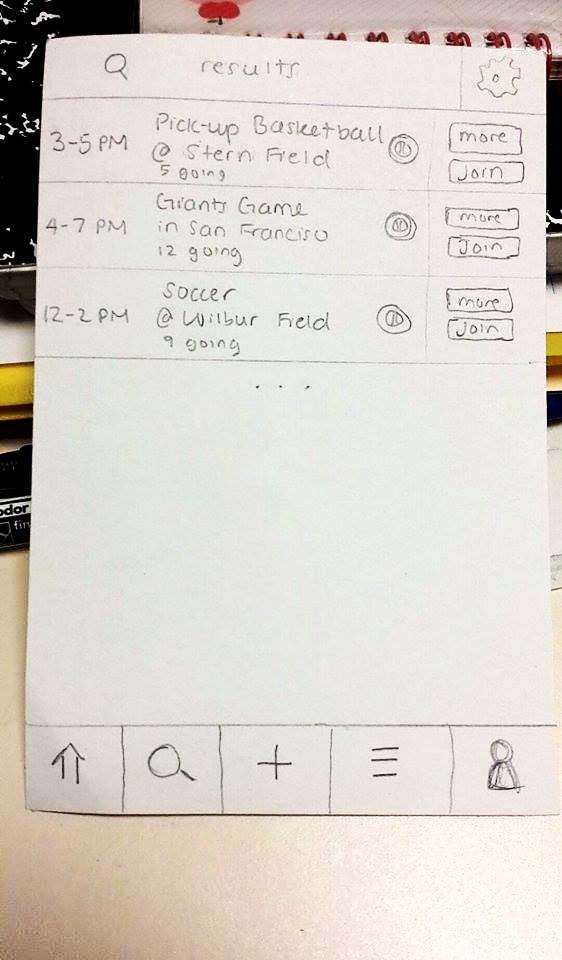 results
3-5 PM
Pick-up Basketball
@ Stern Field
5 going
more
Join
4-7 PM
Giants Game
in San Francisco
12 going
more
Join
12-2 PM
Soccer
@ Wilbur Field
9 going
more
Join
. . .
odor
fin